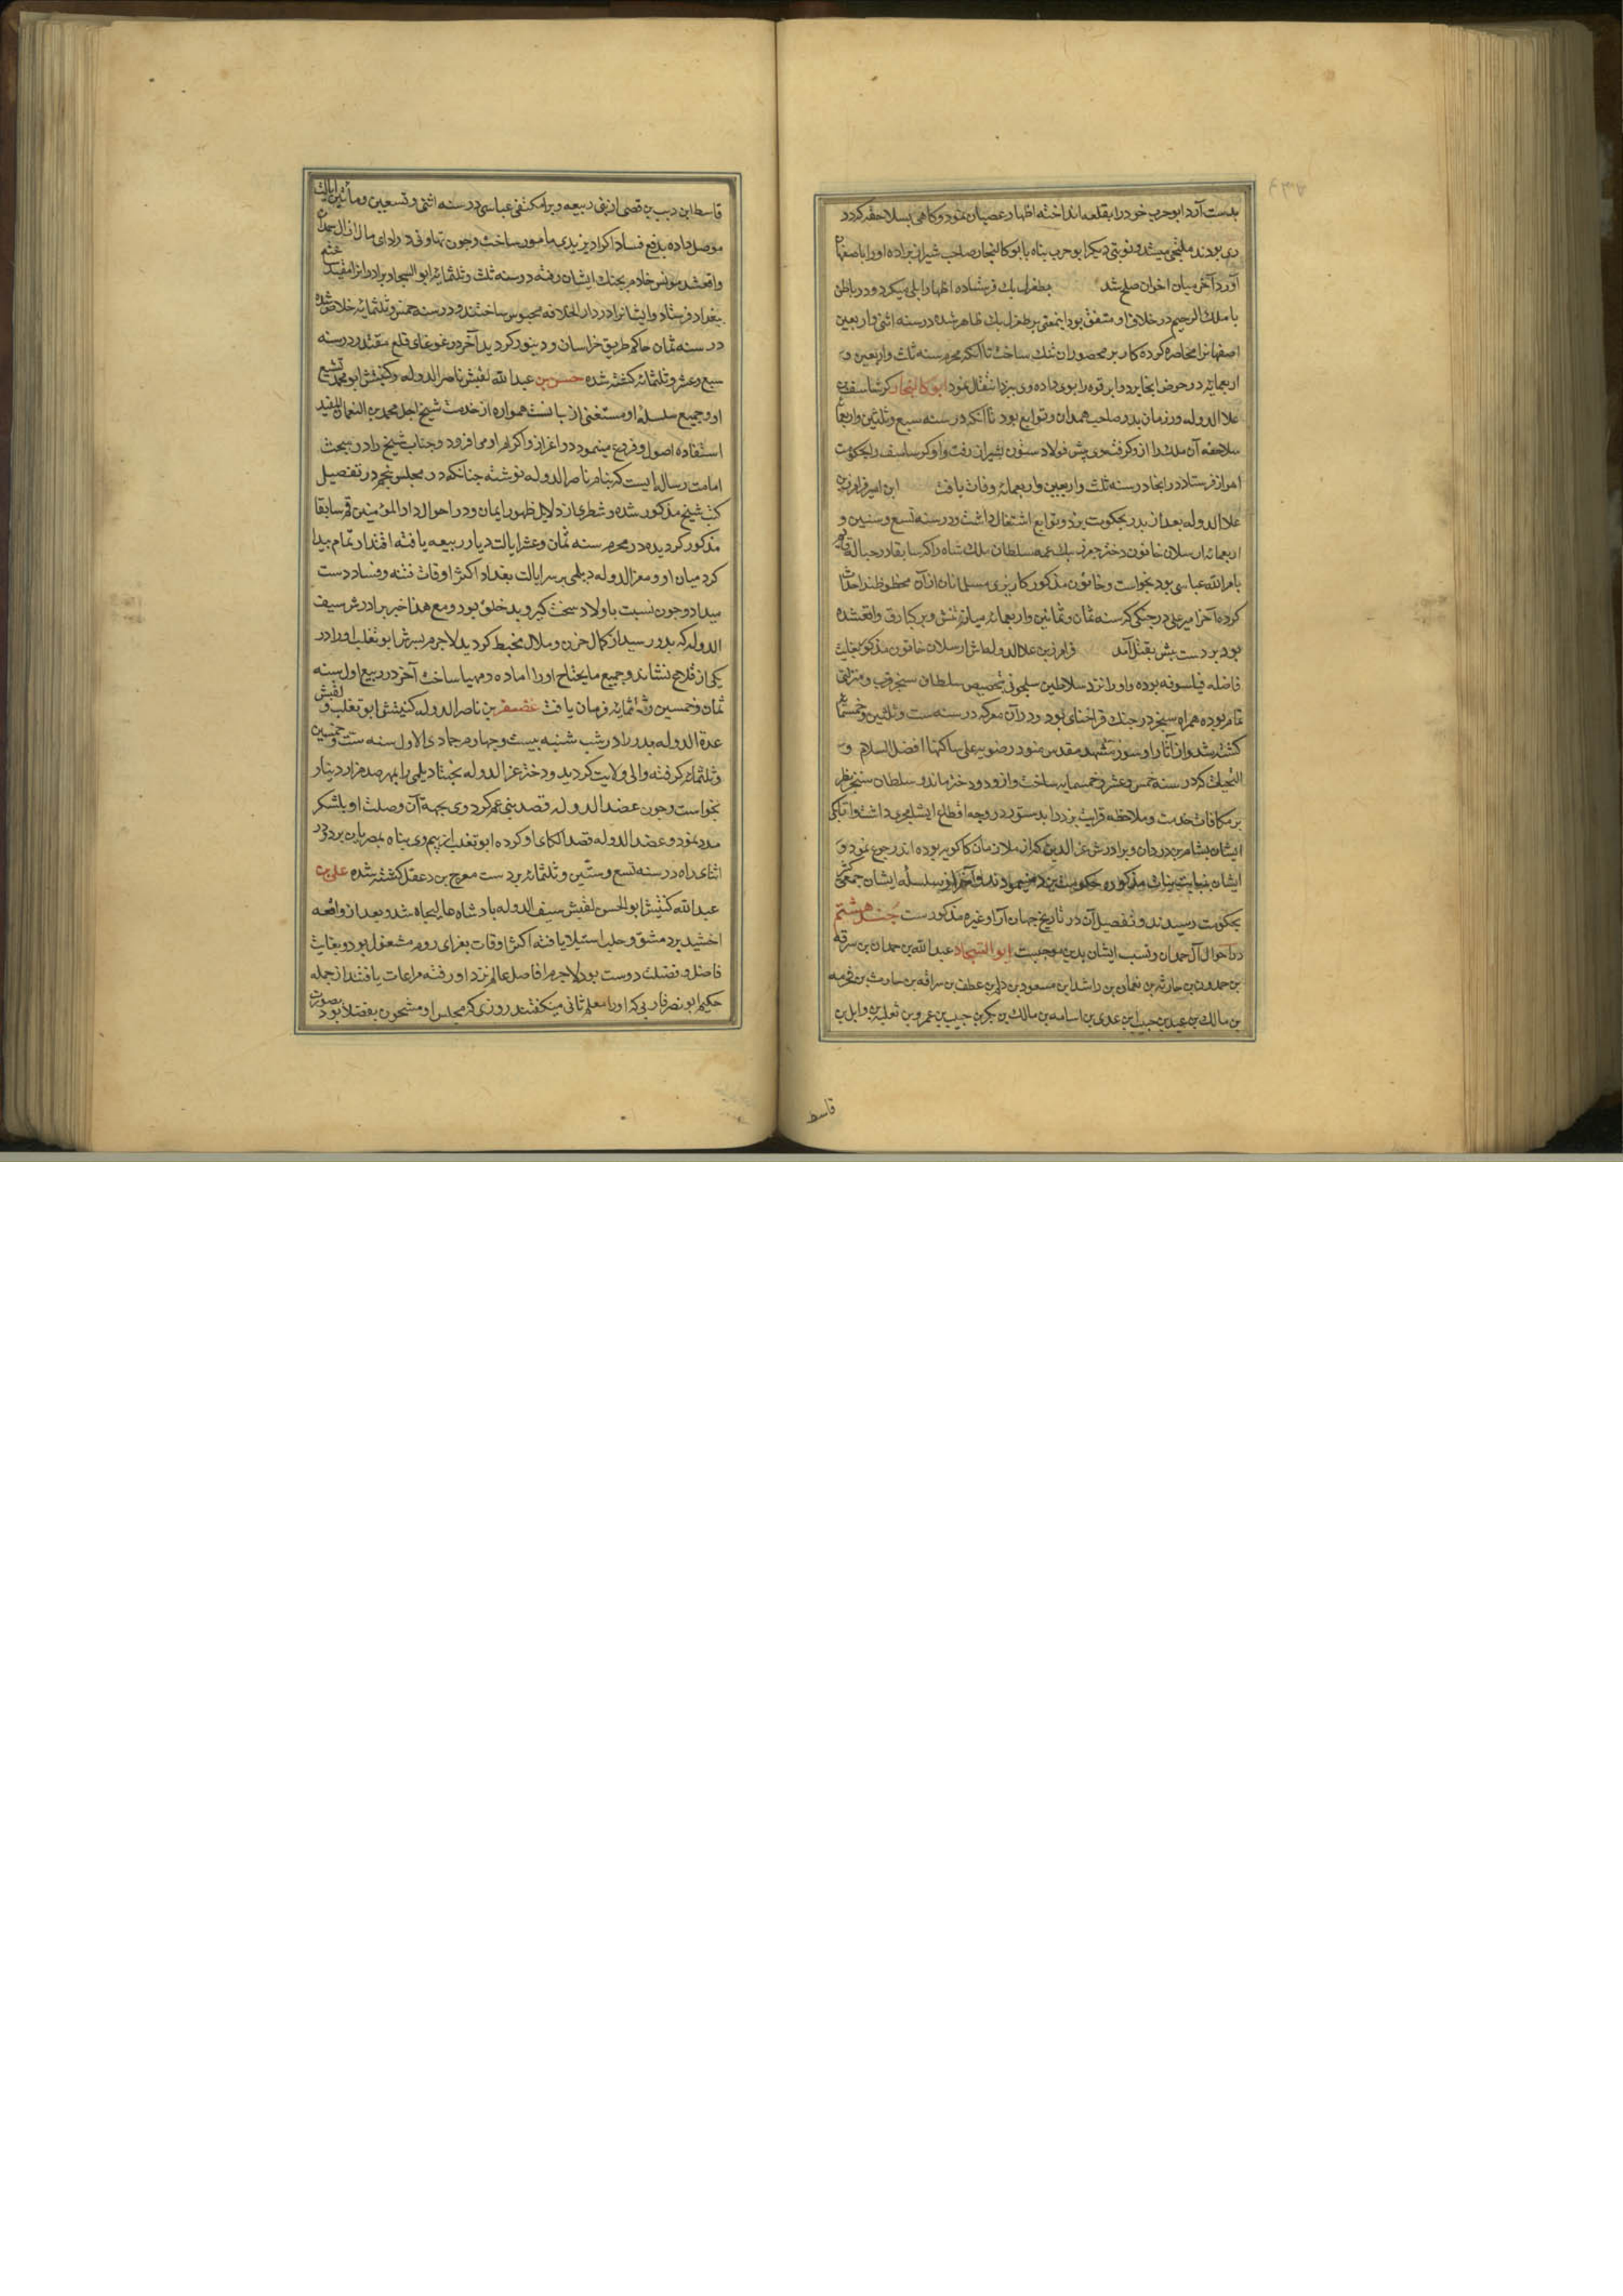 بدست آرد ابوحرب خود را بقلعه انداخته اظهار عصیان نمود و کاهی بسلاجقه که در
ری بودند ملتجی میشد و نوبتی دیکر ابوحرب پناه بابوکالیجار صاحب شیراز برده او را باصفهان
آورد آخر میان اخوان صلح شد بطغرل بك فرستاده اظهار ایلی میکرد و در باطن
با ملك الرحیم در خلاف او متفق بود اینمعنی بر طغرل بك ظاهر شده در سنه اثنی و اربعین
اصفهانرا محاصره کرده کار بر محصوران تنك ساخت تا آنکه محرم سنه ثلث و اربعین و
اربعمایه در عوض انجا یزد و ابرقوه را بوی داده وی بیزد انتقال نمود ابوکالیجار کرشاسف بن
علاالدوله در زمان پدر صاحب همدان و توابع بود تا آنکه در سنه سبع و ثلثین و اربعمایه
سلاجقه آن ملك را ازو کرفته وی پیش فولاد ستون بشیراز رفت و او کرشاسف را بحکومت
اهواز فرستاد در انجا در سنه ثلث و اربعین و اربعمایه وفات یافت ابن امیر فرامرز بن
علاالدوله بعد از پدر بحکومت یزد و توابع اشتغال داشت و در سنه تسع و ستین و
اربعمایه ارسلان خاتون دختر جغری بك عمه سلطان ملك شاه را که سابقا در حباله قایم
بامرالله عباسی بود بخواست و خاتون مذکور کاریزی مسلمانان ازآن محظوظند احداث
کرده آخر امیر علی در جنکی که سنه ثمان و ثمانین و اربعمایه میان تتش و برکیارق واقعشده
بود بر دست تتش بقتل آمد فرامرز بن علاالدوله اش ارسلان خاتون مذکور بغایت
فاضله فیلسوفه بوده و او را نزد سلاطین سلجوقی بتخصیص سلطان سنجر قرب و منزلتی
تمام بوده همراه سنجر در جنك قراختای بود و در آن معرکه در سنه ست و ثلثین و خمسمایه
کشته شد و از آثار او سور مشهد مقدس منور رضویه علی ساکنها افضل السلام و
التحیات که در سنه خمس و عشر و خمسمایه ساخت و ازو دو دختر ماند و سلطان سنجر نظر
بر مکافات خدمت و ملاحظه قرابت یزد را بدستور در وجه اقطاع ایشان مجری داشت و اتابکی
ایشان بسام بن وردان و برادرش عزالدین که از ملازمان کاکویه بوده اند رجوع نمود و
ایشان بنیابت بنات مذکوره حکومت یزد مینمودند و آخر از سلسله ایشان جمعی
بحکومت رسیدند و تفصیل آن در تاریخ جهان آرا و غیره مذکورست جند هشتم
در احوال آل حمدان و نسب ایشان بدین موجبست ابوالهیجاء عبدالله بن حمدان بن
بن حمدون بن حارثه بن نعمان بن راشد ابن مسعود بن دلم بن عطف بن سراقه بن حارث بن
بن مالك بن عبید بن حبیب ابن عدی بن اسامه بن مالك بن بکر بن حبیب بن عمرو بن تغلبه بن وایل بن
قاسط
قاسط ابن دبیب بن قصی از بنی ربیعه و برا مکتفی عباسی در سنه اثنی و تسعین و مأتین ایالت
موصل داده بدفع فساد اکراد یزیدی مامور ساخت و چون تهاونی در ادای مال از آل حمدان
واقعشد مونس خادم بجنك ایشان رفته در سنه ثلث و ثلثمایه ابوالهیجا و برادرانرا مقید
ببغداد فرستاد و ایشانرا در دار الخلافه محبوس ساختند و در سنه خمس و ثلثمایه خلاص شده
در سنه ثمان حاکم طریق خراسان و دینور کردید آخر در غوغای قلع مقتدر در سنه
سبع و عشر و ثلثمایه کشته شده حسن بن عبدالله لقبش ناصرالدوله و کنیتش ابومحمد تشیع
او و جمیع سلسله او مستغنی از بیانست همواره از خدمت شیخ اجل محمد بن النعمان المفید
استفاده اصول و فروع مینمود و در اعزاز و اکرام او می افزود و جناب شیخ را در مبحث
امامت رساله ایست که بنام ناصرالدوله نوشته چنانکه در مجلس پنجم در تفصیل
کتب شیخ مذکور شده و شطری از دلایل ظهور ایمان و در احوال دار المؤمنین قم سابقا
مذکور کردیده در محرم سنه ثمان و عشر ایالت دیار ربیعه یافته اقتدار تمام پیدا
کرد میان او و معزالدوله دیلمی بر سر ایالت بغداد اکثر اوقات فتنه و فساد دست
میداد و چون نسبت باولاد سخت کیر و بد خلق بود و مع هذا خبر برادرش سیف
الدوله که بدو رسید از کمال حزن و ملال مخبط کردید لاجرم پسرش ابوتغلب او را در
یکی از قلاع نشاند و جمیع مایحتاج او را آماده و مهیا ساخت آخر در ربیع اول سنه
ثمان و خمسین و ثلثمایه فرمان یافت غضنفر بن ناصرالدوله کنیتش ابوتغلب و لقبش
عدة الدوله پدر را در شب شنبه بیست و چهارم جمادی الاول سنه ست و خمسین
و ثلثمایه کرفته والی ولایت کردید و دختر عزالدوله بختیار دیلمی را بمهر صد هزار دینار
بخواست و چون عضدالدوله قصد بنی عم کرد وی بجهة آن وصلت او بلشکر
مدد نمود و عضدالدوله قصد الکای او کرده ابوتغلب از بیم وی پناه بمصریان برد و در
اثنای راه در سنه تسع و ستین و ثلثمایه بر دست مفرج بن دغفل کشته شده علی بن
عبدالله کنیتش ابوالحسن لقبش سیف الدوله پادشاه عالیجاه شد و بعد از واقعه
اخشید بر دمشق و حلب استیلا یافته اکثر اوقات بغزای روم مشغول بود و بغایت
فاضل و فضلت دوست بود لاجرم افاضل عالم نزد او رفته مراعات یافتند از جمله
حکیم ابونصر فاربی که او را معلم ثانی میکفتند روزی که مجلس او مشحون بفضلا بود بصورت